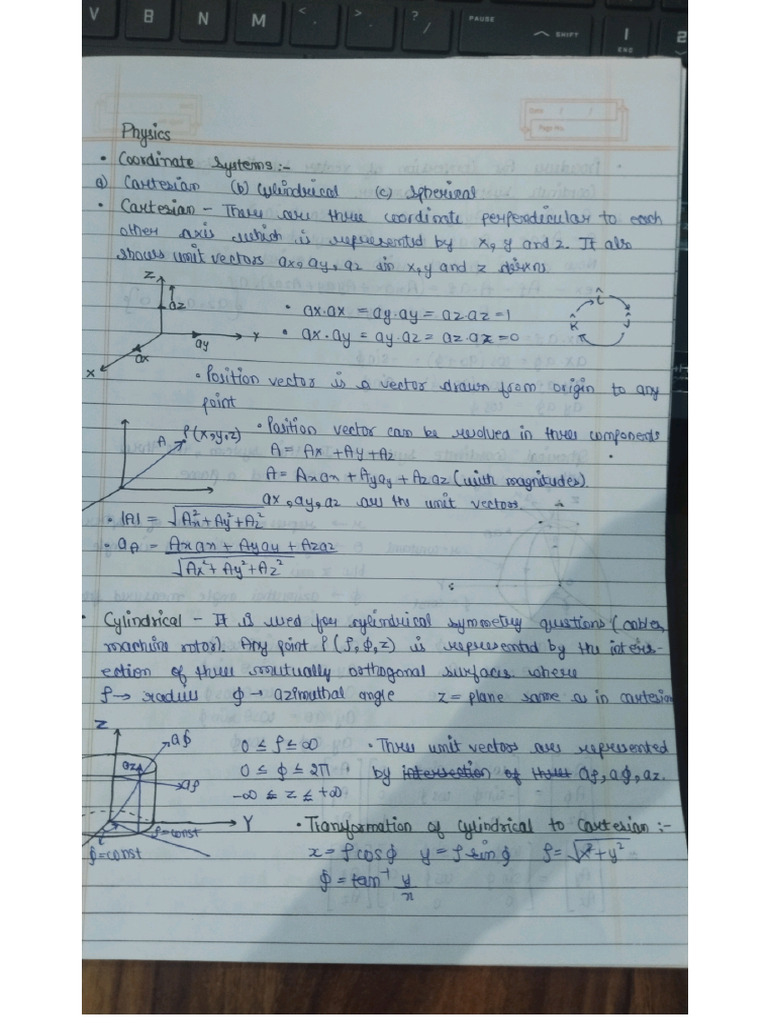 V B N M < , > . ? / PAUSE SHIFT 1 END 2
Date
Page No.
Physics
• Coordinate Systems :-
a) Cartesian (b) Cylindrical (c) Spherical
• Cartesian - There are three coordinate perpendicular to each
other axis which is represented by x, y and z. It also
shows unit vectors ax, ay, az in x, y and z
Z
az
ay
Y
ax
X
• ax.ax = ay.ay = az.az = 1
• ax.ay = ay.az = az.ax = 0
î
ĵ
k̂
• Position vector is a vector drawn from origin to any
point
A P(x,y,z)
• Position vector can be resolved in three components
A = Ax + Ay + Az
A = Axax + Ayay + Azaz (with magnitudes).
ax, ay, az are the unit vectors.
• |A| = √Ax²+Ay²+Az²
• aA = Axax + Ayay + Azaz
√Ax²+Ay²+Az²
• Cylindrical - It is used for cylindrical symmetry questions (cables,
machine rotor). Any point P(ρ,φ,z) is represented by the inters-
ection of three mutually orthogonal surfaces. where
ρ → radius φ → azimuthal angle z = plane same as in cartesian
Z
aφ
az
aρ
Y
ρ=const
φ=const
0 ≤ ρ ≤ ∞
0 ≤ φ ≤ 2π
-∞ ≤ z ≤ +∞
• Three unit vectors are represented
by intersection of three aρ, aφ, az.
• Transformation of cylindrical to Cartesian :-
x = ρcosφ y = ρsinφ ρ = √x²+y²
φ = tan⁻¹ y/x